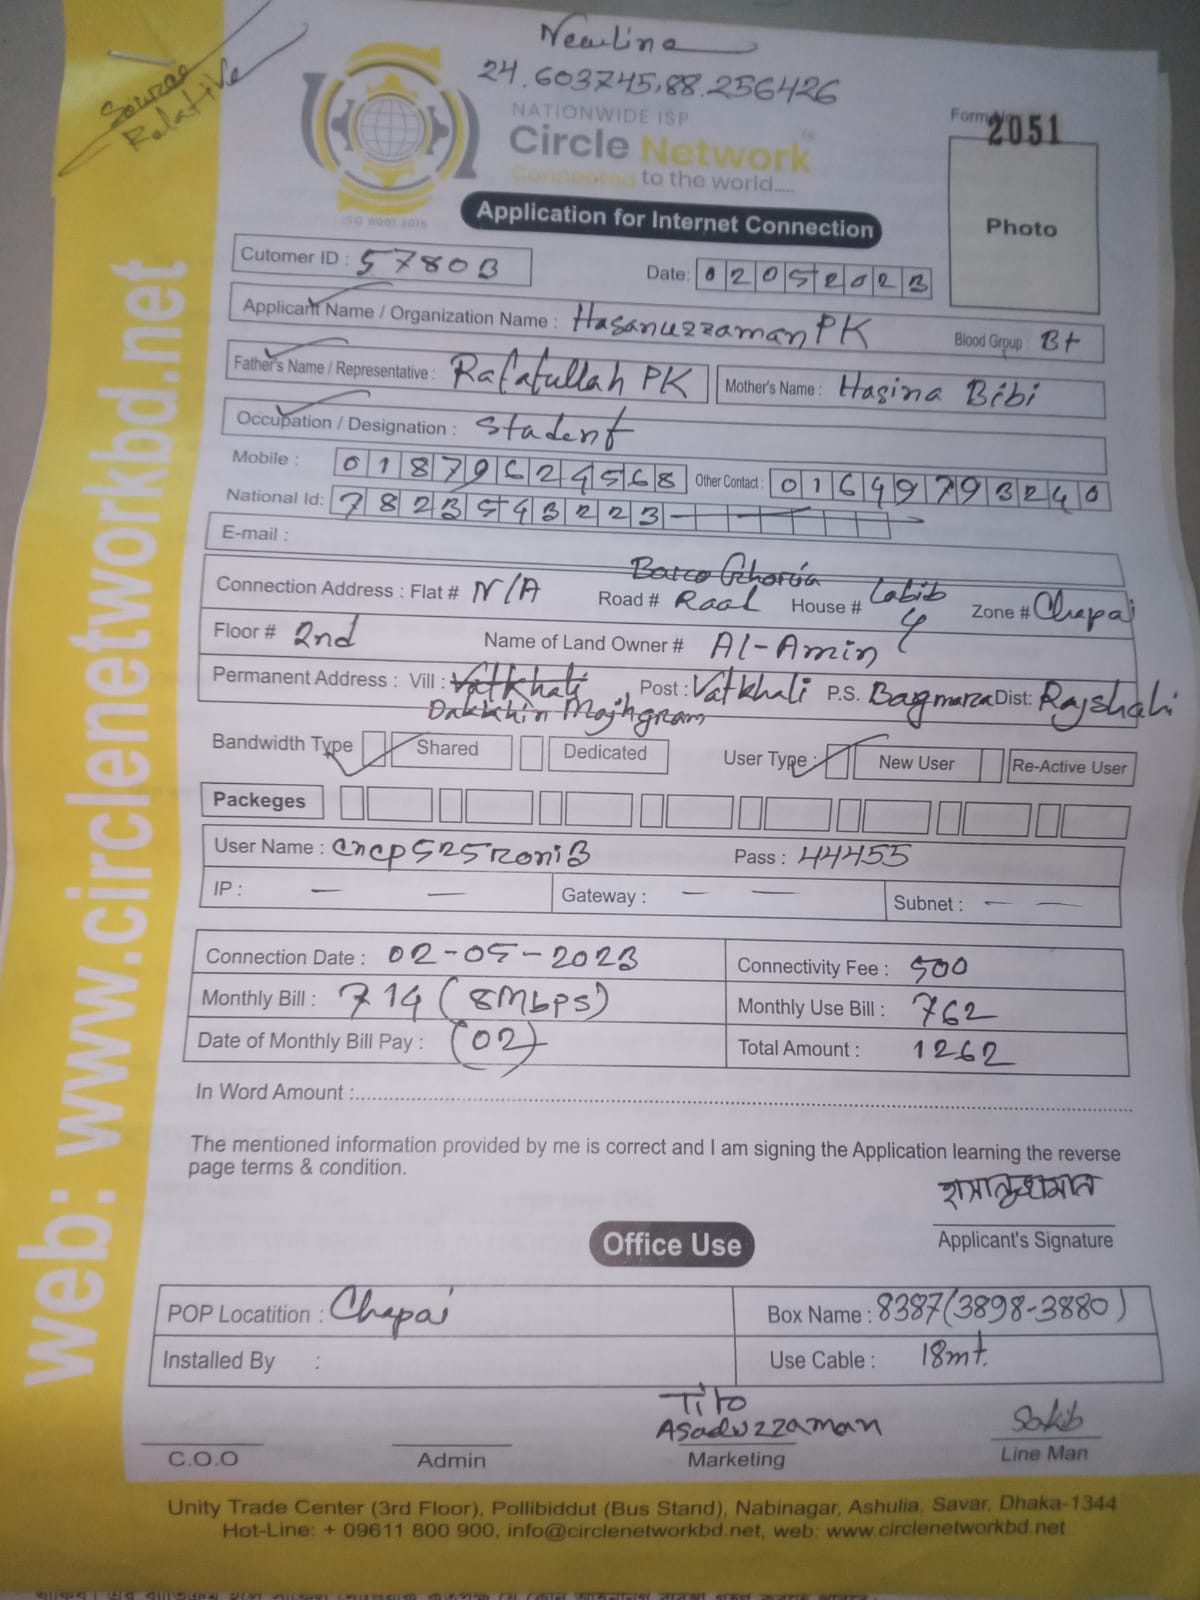 Newline
24.603745,88.256426
Source
Relative
NATIONWIDE ISP
Circle Network
Connected to the world.....
ISO 9001:2015
Form No 2051
Photo
Application for Internet Connection
Cutomer ID : 57803
Date: 02052023
Applicant Name / Organization Name : Hasanuzzaman PK Blood Group : B+
Father's Name / Representative : Rafatullah PK Mother's Name : Hasina Bibi
Occupation / Designation : Student
Mobile : 01879624568 Other Contact : 01649793240
National Id: 7823543223
E-mail :
Connection Address : Flat # N/A Road # Road House # Labib Zone # Chapai
4
Floor # 2nd Name of Land Owner # Al-Amin
Permanent Address : Vill : Vatkhali Post : Vatkhali P.S. Bagmara Dist: Rajshahi
Dakkhin Majhgram
Bandwidth Type Shared Dedicated User Type : New User Re-Active User
Packeges
User Name : cncp525roni3 Pass : 44455
IP : — — Gateway : — — Subnet : — —
Connection Date : 02-05-2023 Connectivity Fee : 500
Monthly Bill : 714 (8Mbps) Monthly Use Bill : 762
Date of Monthly Bill Pay : (02) Total Amount : 1262
In Word Amount :
The mentioned information provided by me is correct and I am signing the Application learning the reverse
page terms & condition.
হাসানুজ্জামান
Applicant's Signature
Office Use
POP Locatition : Chapai Box Name : 8387(3898-3880)
Installed By : Use Cable : 18mt.
Tito
Asaduzzaman Sakib
C.O.O Admin Marketing Line Man
Unity Trade Center (3rd Floor), Pollibiddut (Bus Stand), Nabinagar, Ashulia, Savar, Dhaka-1344
Hot-Line: + 09611 800 900, info@circlenetworkbd.net, web: www.circlenetworkbd.net
web: www.circlenetworkbd.net